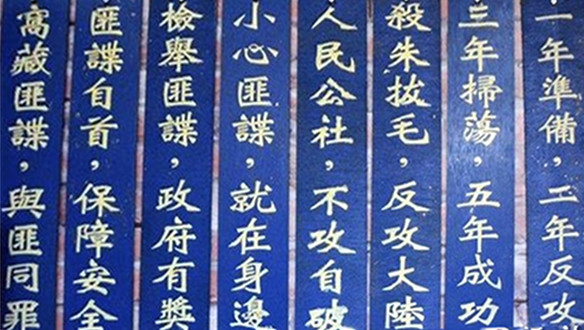 一年準備,二年反攻
三年掃蕩,五年成功
殺朱拔毛,反攻大陸
人民公社,不攻自破
小心匪諜,就在身邊
檢舉匪諜,政府有獎
匪諜自首,保障安全
窩藏匪諜,與匪同罪